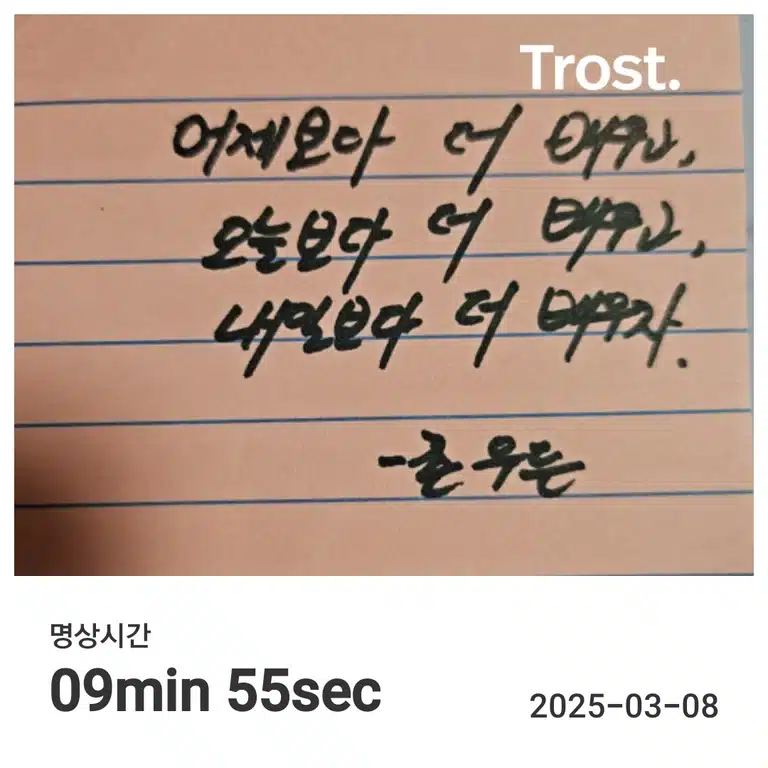 Trost.
어제보다 더 배우고,
오늘보다 더 배우고,
내일보다 더 배우자.
-존 우든
명상시간
09min 55sec
2025-03-08